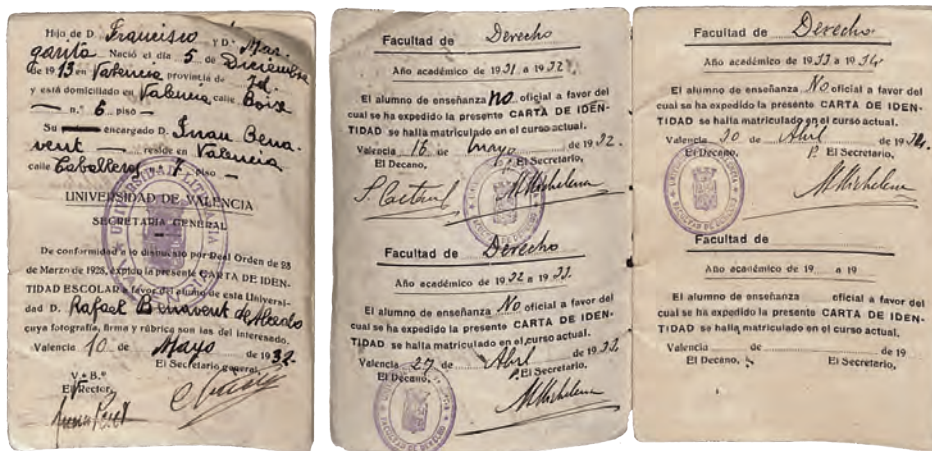 Hijo de D. Francisco y D.ª Mar-
garita Nació el día 5 de Diciembre
de 1913 en Valencia provincia de Id.
y está domiciliado en Valencia calle Boix
— n.º 6 piso —
Su encargado D. Juan Bena-
vent — reside en Valencia
calle Caballeros 7 piso —
UNIVERSIDAD DE VALENCIA
SECRETARIA GENERAL
De conformidad a lo dispuesto por Real Orden de 28
de Marzo de 1928, expido la presente CARTA DE IDEN-
TIDAD ESCOLAR a favor del alumno de esta Universi-
dad D. Rafael Benavent de Alzado
cuya fotografía, firma y rúbrica son las del interesado.
Valencia 10 de Mayo de 1932
El Secretario general,
V.º B.º
El Rector,
Facultad de Derecho
Año académico de 1931 a 1932
El alumno de enseñanza no oficial a favor del
cual se ha expedido la presente CARTA DE IDEN-
TIDAD se halla matriculado en el curso actual.
Valencia 16 de mayo de 1932.
El Decano, P. El Secretario,
M. Michelena
Facultad de Derecho
Año académico de 1932 a 1933.
El alumno de enseñanza No oficial a favor del
cual se ha expedido la presente CARTA DE IDEN-
TIDAD se halla matriculado en el curso actual.
Valencia 27 de Abril de 1933.
El Decano, P. El Secretario,
M. Michelena
FACULTAD DE DERECHO
Facultad de Derecho
Año académico de 1933 a 1934
El alumno de enseñanza No oficial a favor del
cual se ha expedido la presente CARTA DE IDEN-
TIDAD se halla matriculado en el curso actual.
Valencia 20 de Abril de 1934.
El Decano, P. El Secretario,
M. Michelena
FACULTAD DE DERECHO
Facultad de
Año académico de 19 a 19
El alumno de enseñanza oficial a favor del
cual se ha expedido la presente CARTA DE IDEN-
TIDAD se halla matriculado en el curso actual.
Valencia de de 19
El Decano, El Secretario,